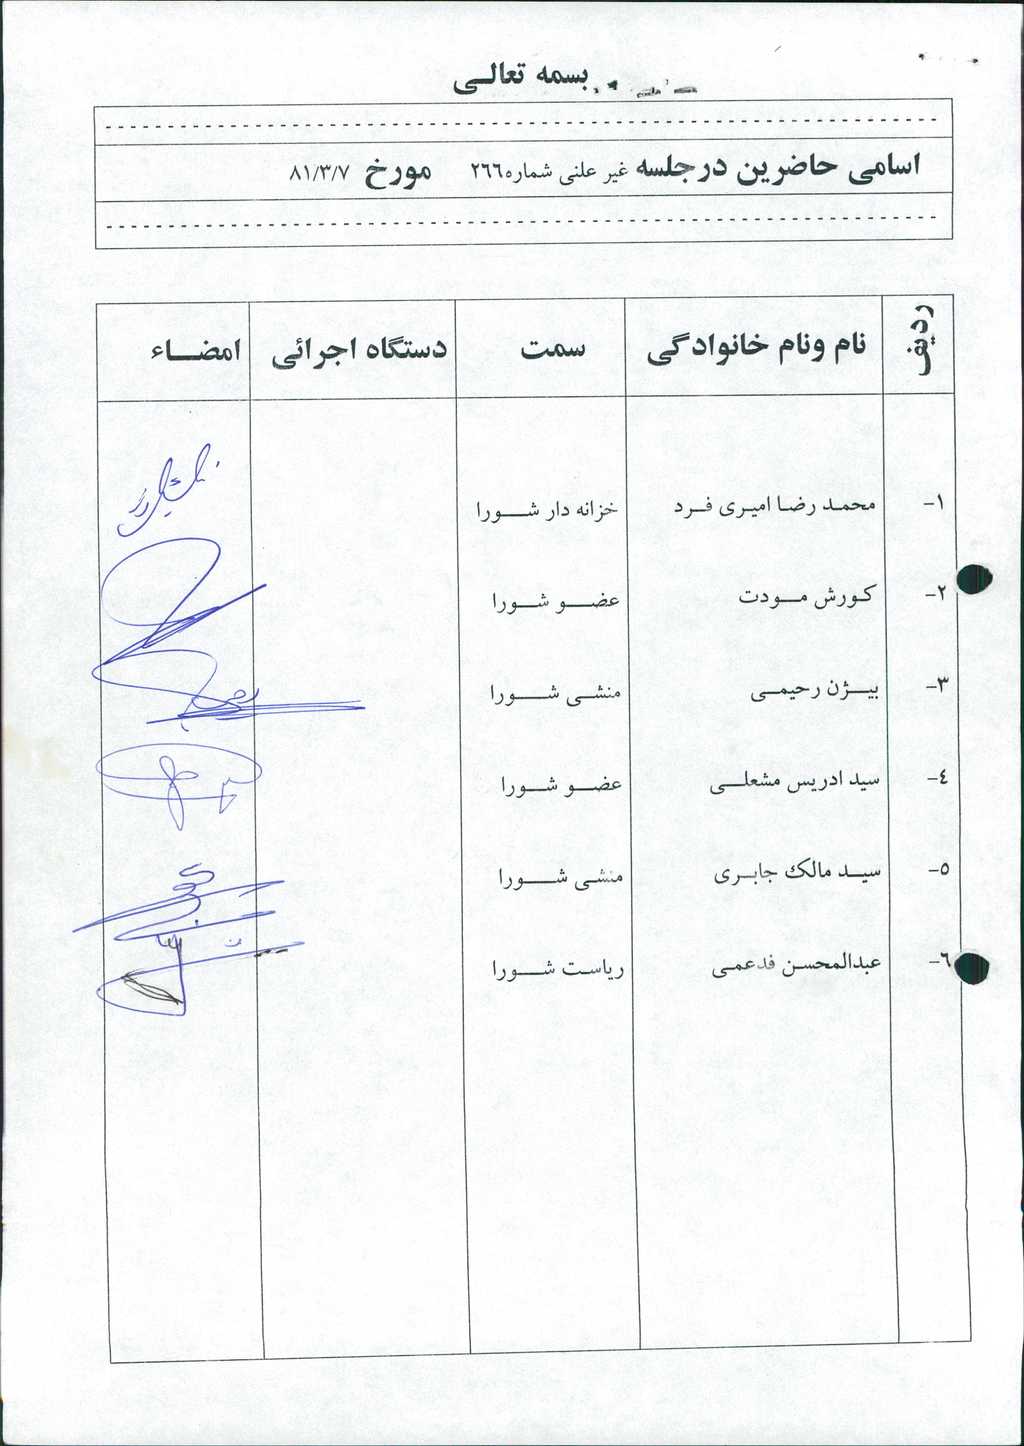 بسمه تعالی
اسامی حاضرین درجلسه غیر علنی شماره ۲۶۶ مورخ ۸۱/۳/۷
ردیف نام ونام خانوادگی سمت دستگاه اجرائی امضاء
۱- محمد رضا امیری فرد خزانه دار شورا
۲- کورش مودت عضو شورا
۳- بیژن رحیمی منشی شورا
۴- سید ادریس مشعلی عضو شورا
۵- سید مالک جابری منشی شورا
۶- عبدالمحسن فدعمی ریاست شورا